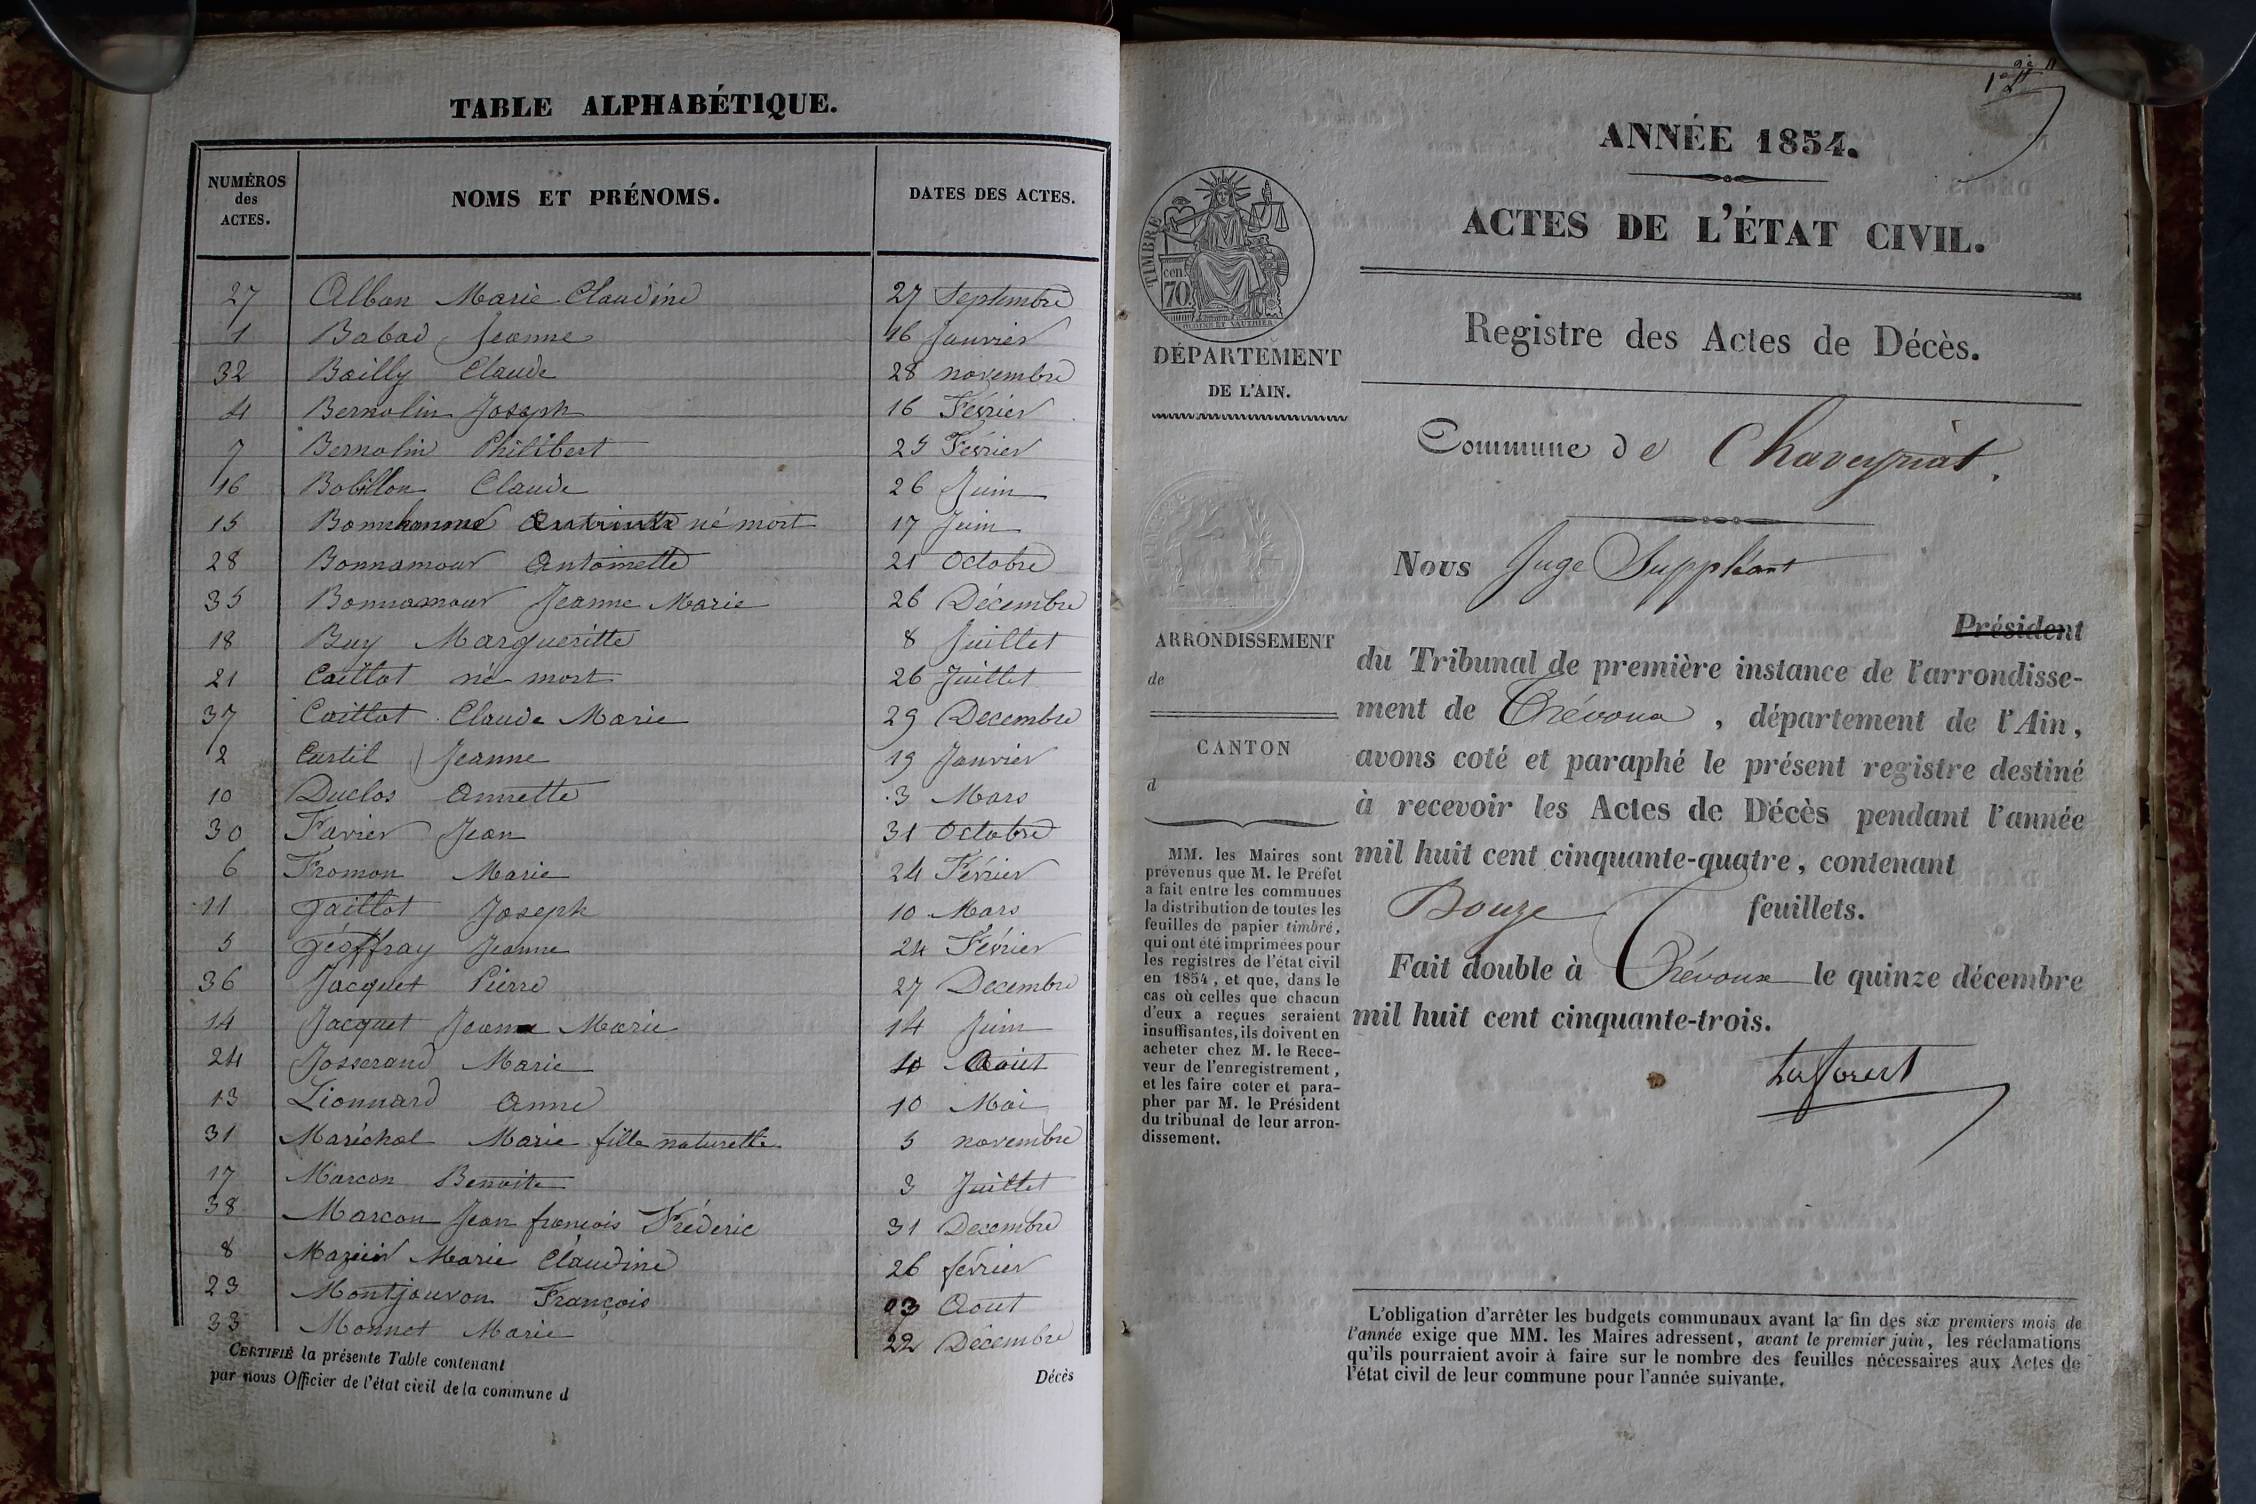 TABLE ALPHABÉTIQUE.
NUMÉROS des ACTES. NOMS ET PRÉNOMS. DATES DES ACTES.
27 Alban Marie Claudine 27 Septembre
1 Babad Jeanne 16 Janvier
32 Bailly Claude 28 novembre
4 Bernolin Joseph 16 Février
7 Bernolin Philibert 25 Février
16 Bobillon Claude 26 Juin
15 né mort 17 Juin
28 Bonnamour Antoinette 21 Octobre
35 Bonnamour Jeanne Marie 26 Décembre
18 Buy Margueritte 8 Juillet
21 Caillat né mort 26 Juillet
37 Caillat Claude Marie 29 Decembre
2 Curtil Jeanne 19 Janvier
10 Duclos Annette 3 Mars
30 Favier Jean 31 Octobre
6 Fromon Marie 24 Février
11 Gaillot Joseph 10 Mars
5 Géoffray Jeanne 24 Février
36 Jacquet Pierre 27 Decembre
14 Jacquet Jeanne Marie 14 Juin
24 Josserand Marie Aout
13 Lionnard Anne 10 Mai
31 Maréchal Marie fille naturelle 5 novembre
17 Marcon Benoite 3 Juillet
38 Marcon Jean françois Fréderic 31 Decembre
8 Marie Claudine 26 février
23 Montjouvon François 3 Aout
33 Monnet Marie 22 Décembre
CERTIFIÉ la présente Table contenant Décès
par nous Officier de l'état civil de la commune d
ANNÉE 1854.
ACTES DE L'ÉTAT CIVIL.
TIMBRE
cen. 70
Registre des Actes de Décès.
DÉPARTEMENT
DE L'AIN.
Commune de Chaveyriat.
Nous Juge Suppléant
Président
du Tribunal de première instance de l'arrondisse-
ment de Trévoux, département de l'Ain,
avons coté et paraphé le présent registre destiné
à recevoir les Actes de Décès pendant l'année
mil huit cent cinquante-quatre, contenant
Douze feuillets.
Fait double à Trévoux le quinze décembre
mil huit cent cinquante-trois.
ARRONDISSEMENT
de
CANTON
d
MM. les Maires sont
prévenus que M. le Préfet
a fait entre les communes
la distribution de toutes les
feuilles de papier timbré,
qui ont été imprimées pour
les registres de l'état civil
en 1854, et que, dans le
cas où celles que chacun
d'eux a reçues seraient
insuffisantes, ils doivent en
acheter chez M. le Rece-
veur de l'enregistrement,
et les faire coter et para-
pher par M. le Président
du tribunal de leur arron-
dissement.
L'obligation d'arrêter les budgets communaux avant la fin des six premiers mois de
l'année exige que MM. les Maires adressent, avant le premier juin, les réclamations
qu'ils pourraient avoir à faire sur le nombre des feuilles nécessaires aux Actes de
l'état civil de leur commune pour l'année suivante.